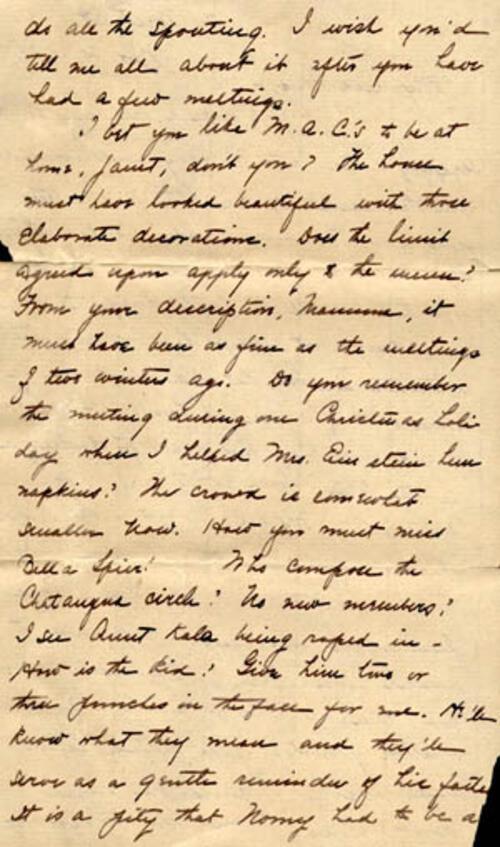 do all the spouting. I wish you'd
tell me all about it after you have
had a few meetings.
I bet you like M.A.C.'s to be at
home, Janet, don't you? The house
must have looked beautiful with those
elaborate decorations. Does the limit
agreed upon apply only to the menu?
From your description, Mamma, it
must have been as fine as the meetings
of two winters ago. Do you remember
the meeting during one Christmas holi
day when I helped Mrs. Einstein hem
napkins? The crowd is somewhat
smaller now. How you must miss
Della Spier! Who compose the
Chatauqua circle? No new members?
I see Aunt Kala being roped in -
How is the kid? Give him two or
three punches in the face for me. He'll
know what they mean and they'll
serve as a gentle reminder of his
It is a pity that had to be a